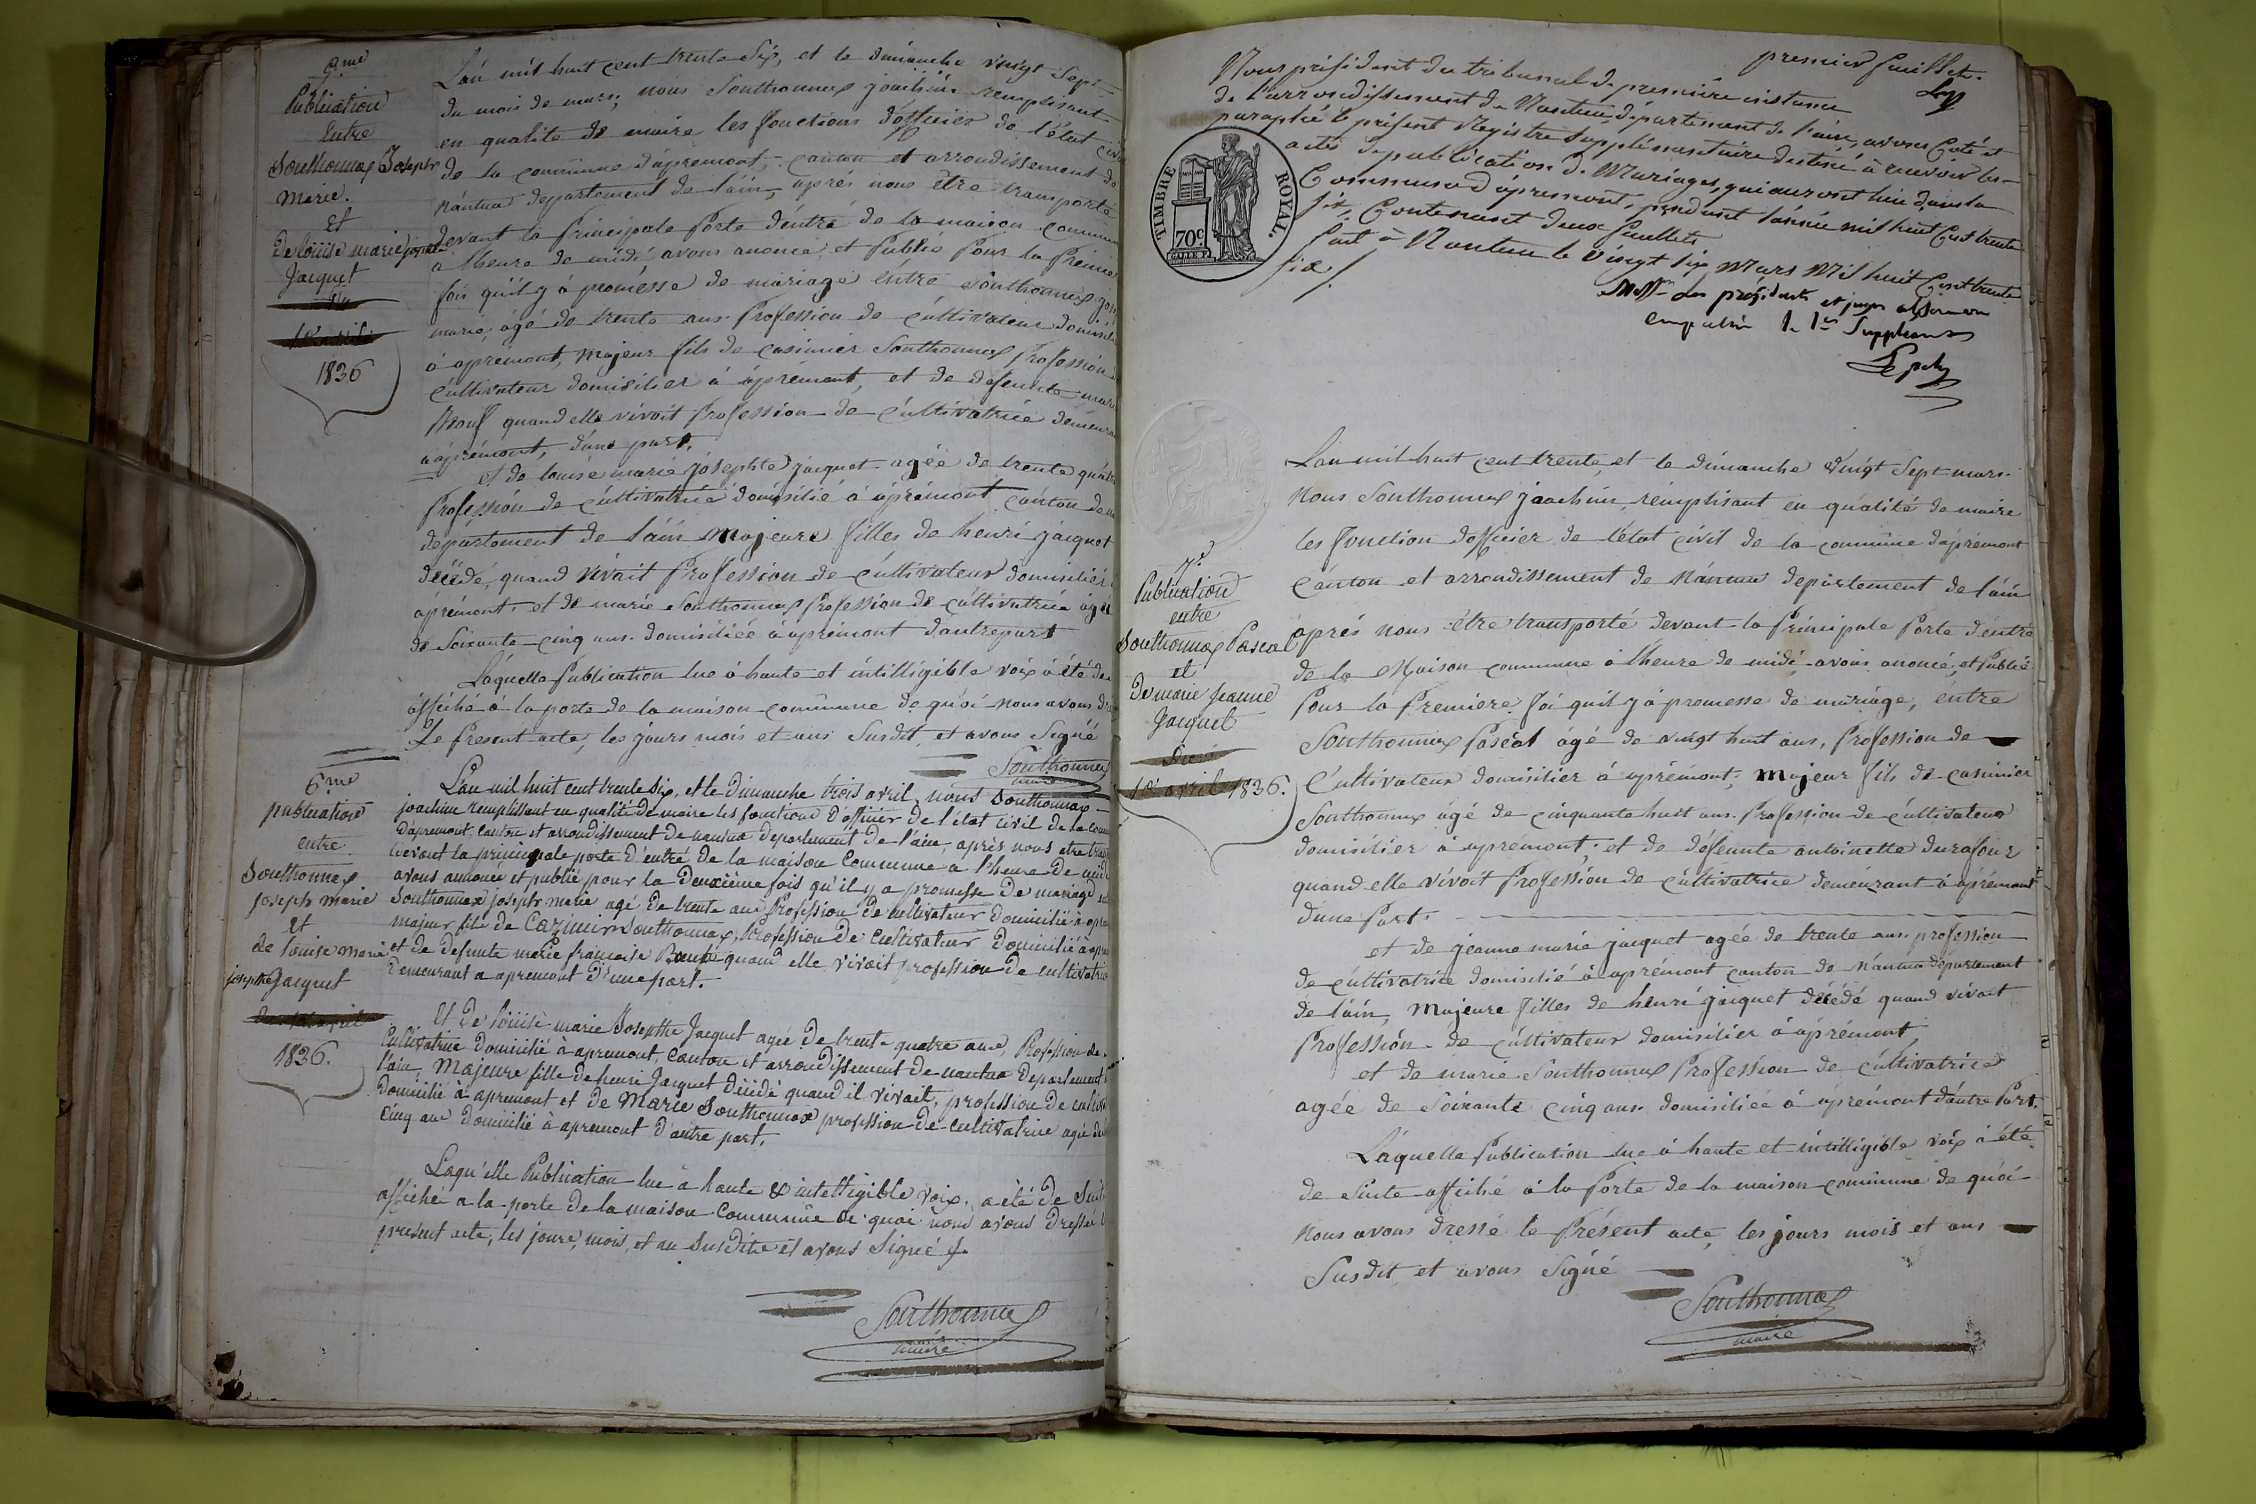 5.me
Publication
Entre
Southonnax Joseph
Marie.
Et
De louise marie josephte
Jacquet
1836
L'an mil huit cent trente Six, et le dimanche vingt Sept
du mois de mars, nous Southonnax joachim remplisant
en qualité de maire les fonctions d'officier de l'état civil
de la commune d'apremont, canton et arrondissement de
Nantua departement de l'ain, aprés nous être transporté
devant la principale Porte d'entré de la maison commune
a l'heure de midi avons anoncé, et Publié Pour la Premiere
fois qu'il y à promésse de mariage entre Southonnax
marie, âgé de trente ans Profession de cultivateur domicilié
à aprémont, Majeur fils de casimier Southonnax Profession
Cultivateur domicilier à aprémont, et de defeunte marie
quand elle vivoit Profession de cultivatrice demeurant
a aprémont, d'une part.
et de louise marie josephte jacquet agée de trente quatre
Profession de cultivatrice domisilié à aprémont canton de
département de l'ain Majeure filles de henri jacquet
décédé, quand vivait Profession de cultivateur domisilier
aprémont. et de marie Southonnax Profession de cultivatrice âgée
de Soixante cinq ans domisiliée à aprémont d'autre part
Laquelle Publication lue à haute et intélligible voix à été de
affiché à la porte de la maison commune de quoi nous avons
Le Present acte, les jours mois et ans Susdit, et avons Signé
Southonnax
maire
6.me
publication
entre
Southonnax
joseph marie
Et
de louise marie
josephte Jacquet
1836.
L'an mil huit cent trente Six, et le Dimanche trois avril, nous Southonnax
joachim remplissant en qualité de maire les fonctions d'officier de l'état civil de la commune
d'apremont canton et arrondissement de nantua departement de l'ain, après nous etre
devant la principale porte d'entré de la maison Commune a l'heure de midi
avons annoncé et publié pour la deuxième fois qu'il y a promesse de mariage
Southonnax joseph marie agé de trente ans Profession de cultivateur domicilié à
majeur fils de Cazimir Southonnax, Profession de cultivateur domicilié à
et de defunte marie francoise quand elle vivoit profession de cultivatrice
Demeurant a apremont d'une part.
Et de louise marie Josephte Jacquet agée de trente quatre ans, Profession de
Cultivatrice domicilié à apremont, Canton et arrondissement de nantua Departement
l'ain, Majeure fille de henri Jacquet décédé quand il vivait, profession de
domicilié à apremont et de Marie Southonnax profession de cultivatrice agée de
Cinq ans domicilié à apremont d'autre part.
Laqu'elle Publication lue à haute & intelligible voix, a été de Suite
affiché a la porte de la maison Commune de quoi nous avons dressé le
present acte, les jours, mois, et an Susdits et avons Signé
Southonnax
maire
premier feuillet.
Nous président du tribunal de première instance
de l'arrondissement de Nantua, département de l'ain, avons Coté et
paraphé le présent Registre Supplémentaire destiné à recevoir les
actes de publication de Mariages, qui auront lieu dans la
Commune d'apremont, pendant l'année mil huit Cent trente
six, Contenant deux feuillets
fait à Nantua le vingt six Mars Mil huit Cent trente
six ./.
TIMBRE ROYAL.
70c.
7.e
Publication
entre
Southonnax Pascal
et
De marie Jeanne
Jacquet
1836.
L'an mil huit cent trente, et le dimanche vingt Sept mars
Nous Southonnax joachim, remplisant en qualité de maire
les Fonction d'officier de l'état civil de la commune d'aprémont
Canton et arrondissement de Nantua departement de l'ain
aprés nous être transporté devant la Principale Porte d'entré
de la Maison commune à l'heure de midi avons anoncé, et Publié
Pour la Premiere foi qu'il y à promesse de mariage, entre
Southonnax Pascal agé de vingt huit ans, Profession de
Cultivateur domisilier à aprémont, Majeur fils de casimier
Southonnax âgé de cinquante huit ans. Profession de cultivateur
domisilier à aprémont, et de défeunte antoinette durafour
quand elle vivoit Profession de cultivatrice demeurant à aprémont
d'une Part.
et de jéanne marie jacquet agée de trente ans profession
de cultivatrice domisilié à aprémont canton de Nantua département
de l'ain, Majeure filles de henri jacquet décédé quand vivait
Profession de cultivateur domisilier à aprémont,
et de marie Southonnax Profession de cultivatrice
agée de Soixante cinq ans domisiliée à aprémont d'autre Part.
Laquelle Publication lue à haute et intélligible voix à été
de Suite affiché à la Porte de la maison commune de quoi
Nous avons dressé le Présent acte, les jours mois et ans
Susdit, et avons Signé
Southonnax
maire